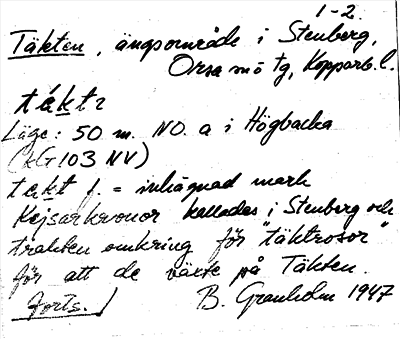 1-2.
Täkten, ängsområde i Stenberg,
Orsa sn ö tg, Kopparb. l.
táktɛ
Läge: 50 m. NO. a i Högbacka
(kG 103 NV)
täkt f. = inhägnad mark
Kejsarkronor kallades i Stenberg och
trakten omkring för "täktrosor"
för att de växte på Täkten.
Forts.
B. Granholm 1947